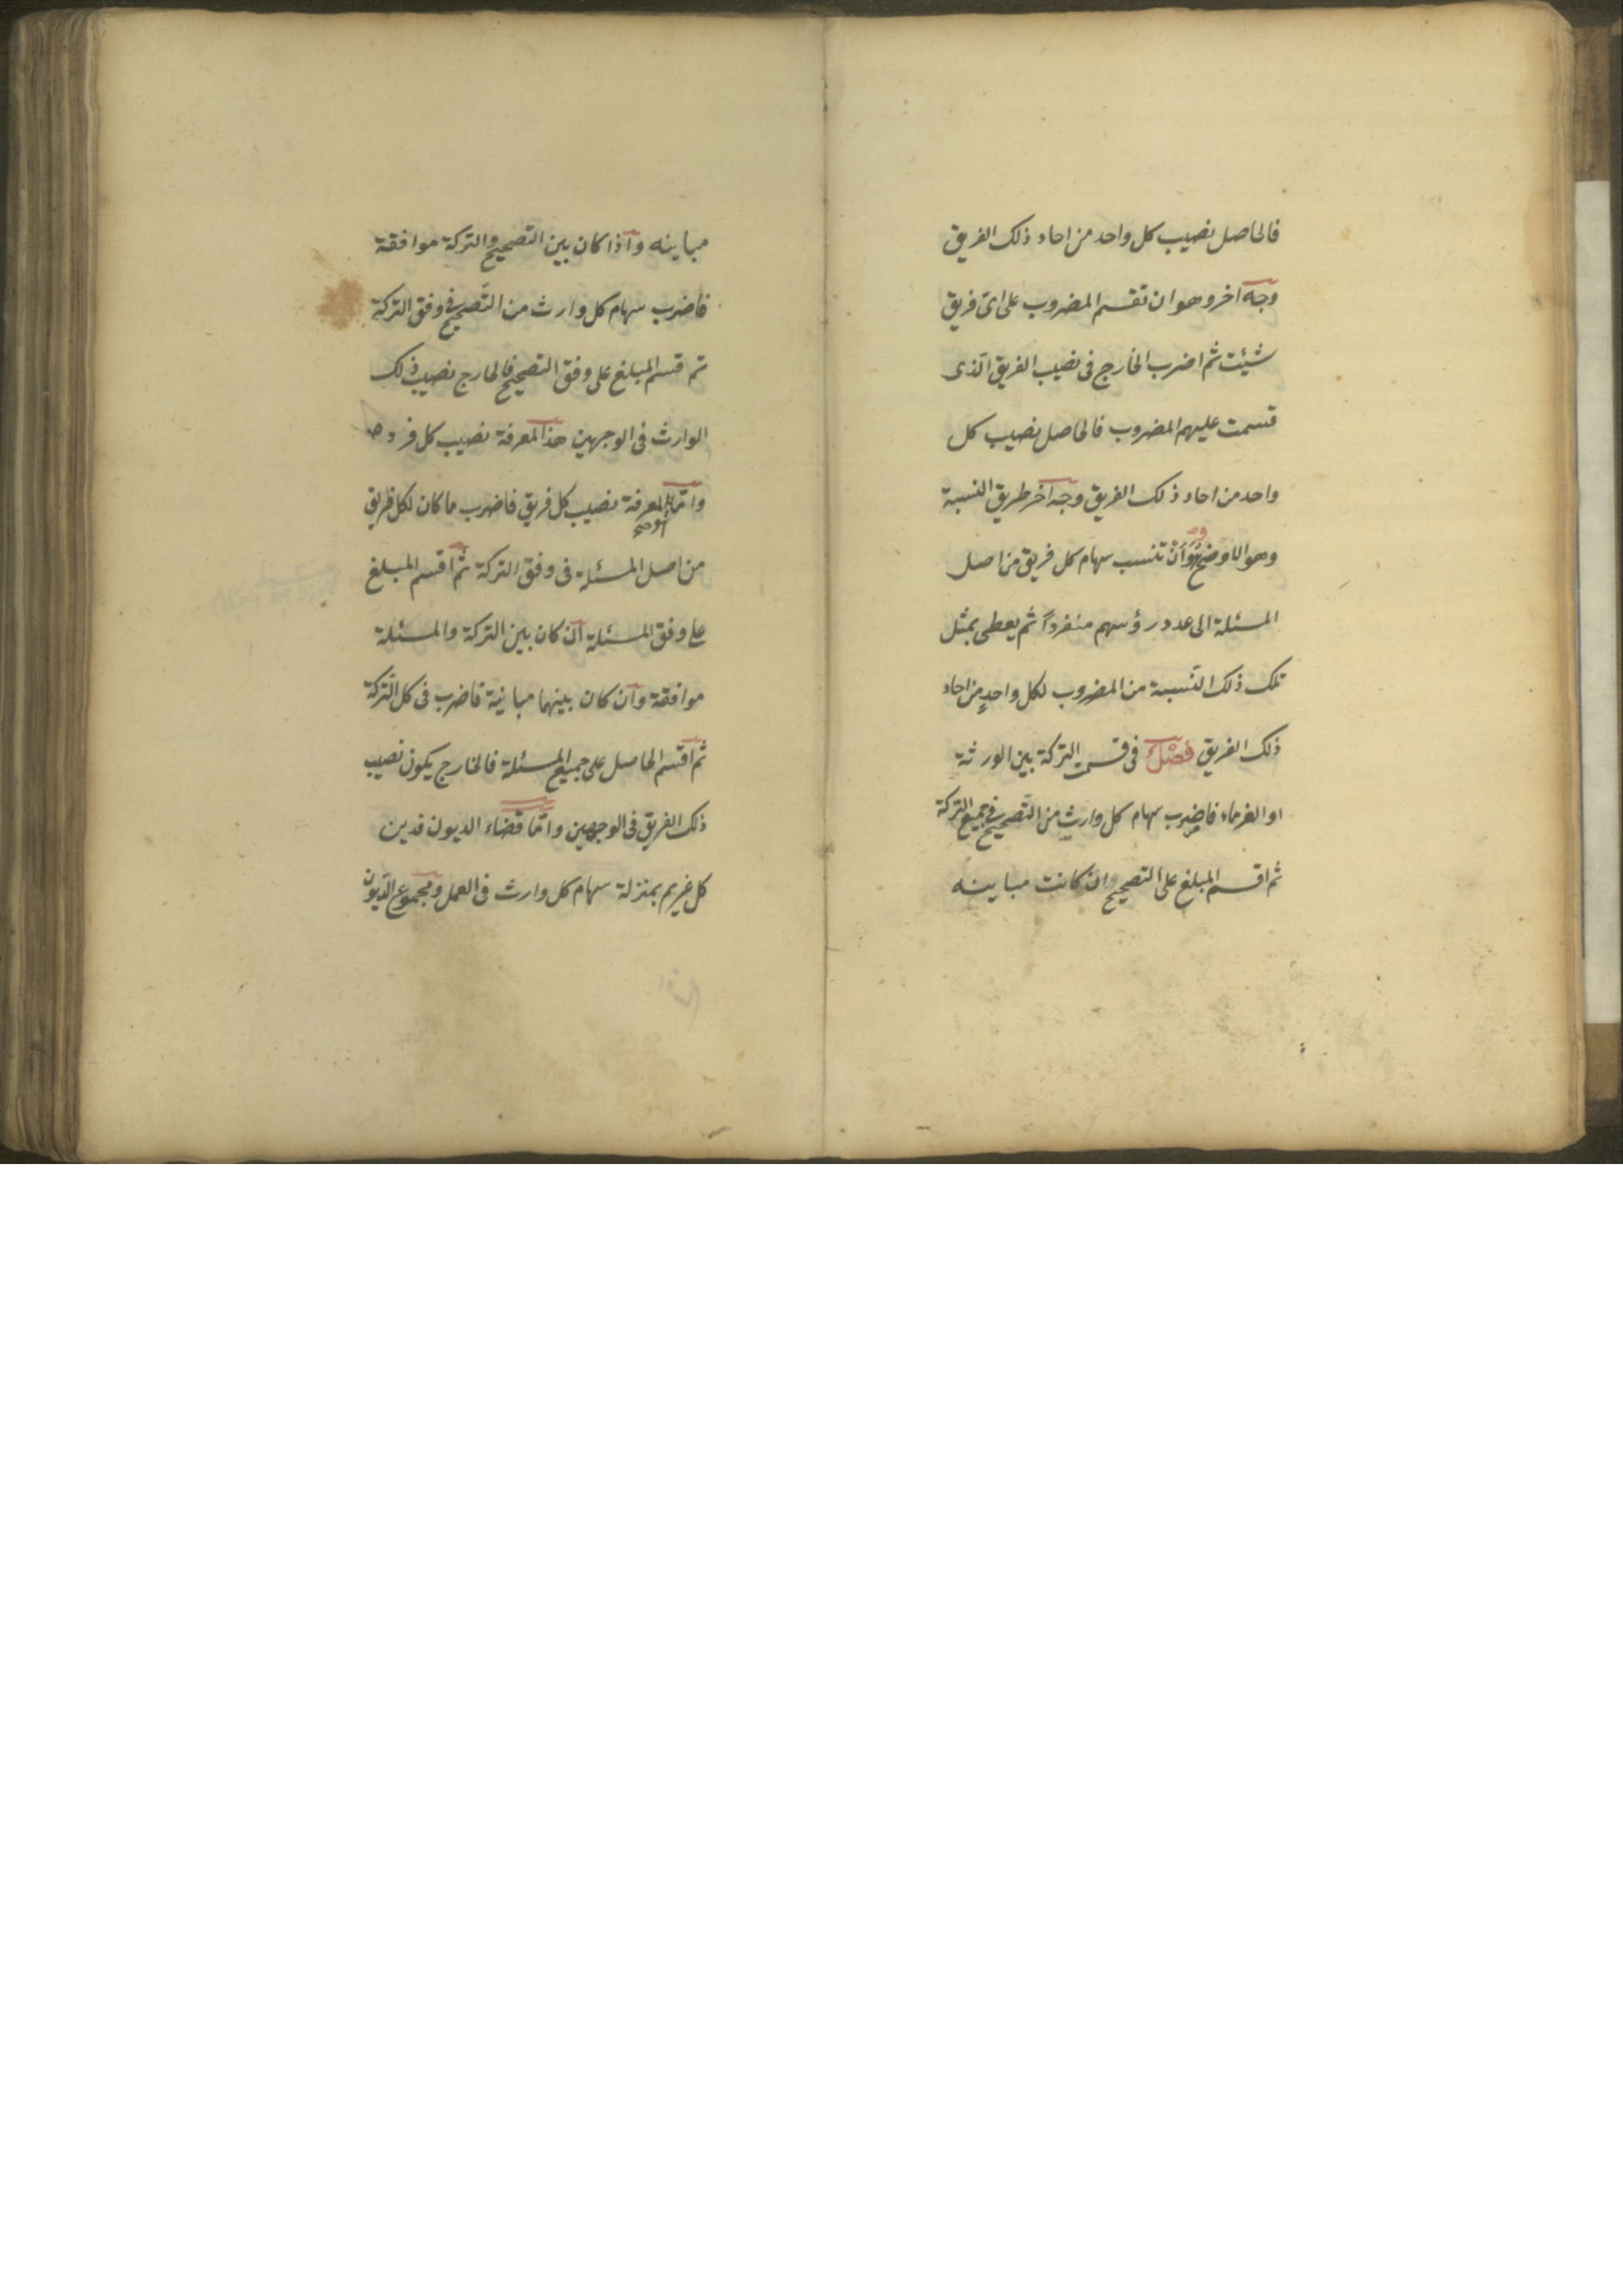 فالحاصل نصيب كل واحد من احاد ذلك الفريق
وجه اخر وهو ان تقسم المضروب على اىّ فريق
شيئت ثم اضرب الخارج فى نصيب الفريق الّذى
قسمت عليهم المضروب فالحاصل نصيب كل
واحد من احاد ذلك الفريق وجه اخر طريق النسبة
وهو الاوضح وهو أنْ تنسب سهام كل فريق من اصل
المسئلة الى عدد رؤسهم منفرداً ثم يعطى بمثل
تلك ذلك النّسبة من المضروب لكل واحدٍ من احاد
ذلك الفريق فصْل فى قسمت التركة بين الورثة
او الغرماء فاضرب سهام كل وارث من التّصحيح فى جميع التركة
ثم اقسم المبلغ على التصحيح ان كانت مباينه
مباينه واذا كان بين التصحيح والتركة موافقة
فاضرب سهام كل وارث من التّصحيح فى وفق التركة
ثم قسم المبلغ على وفق التصحيح فالخارج نصيب ذلك
الوارث فى الوجهين هذا لمعرفة نصيب كل فرد
وامّا لمعرفة نصيب كل فريق فاضرب ما كان لكل فريق
من اصل المسئلة فى وفق التركة ثم اقسم المبلغ
على وفق المسئلة ان كان بين التركة والمسئلة
موافقة وان كان بينهما مباينة فاضرب فى كل التّركة
ثم اقسم الحاصل على جميع المسئلة فالخارج يكون نصيب
ذلك الفريق فى الوجهين وامّا قضاء الديون فدين
كل غريم بمنزلة سهام كل وارث فى العمل ومجموع الدّيون